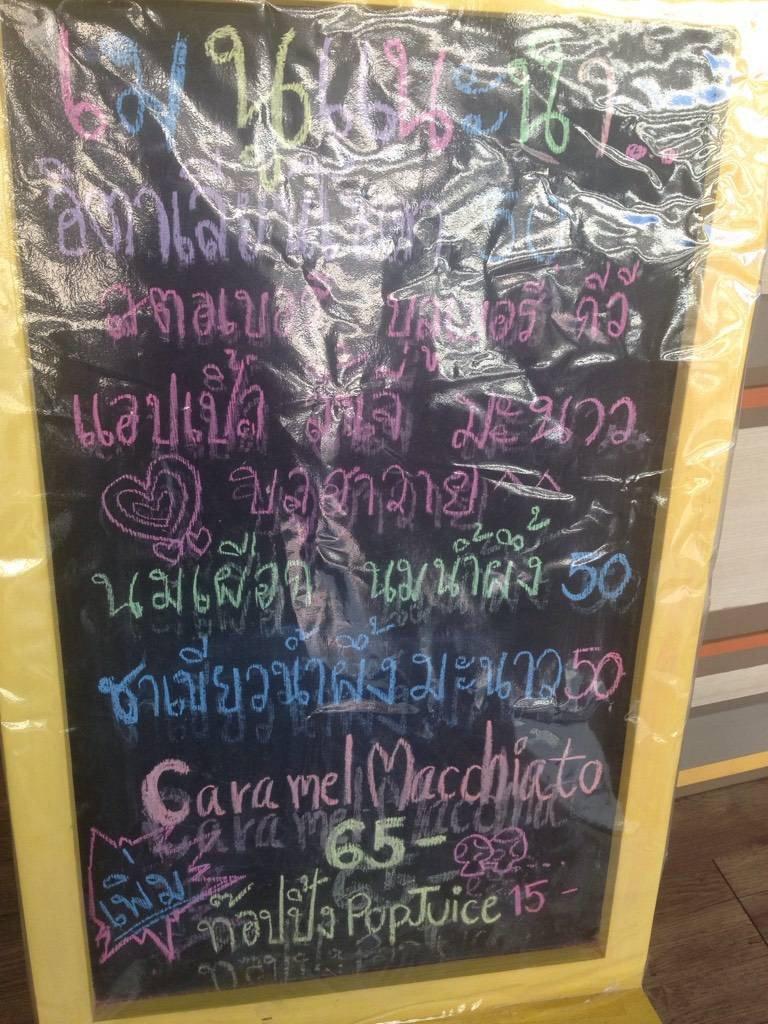 เมนูแนะนำ..
อิตาเลี่ยนโซดา 50
สตอเบอรี่ บลูเบอรี่ กีวี่
แอปเปิ้ล ลิ้นจี่ มะนาว
บลูฮาวาย ^^
นมเผือก นมน้ำผึ้ง 50
ชาเขียวน้ำผึ้งมะนาว 50
Caramel Macchiato
65-
เพิ่ม ท๊อปปิ้ง PopJuice 15-